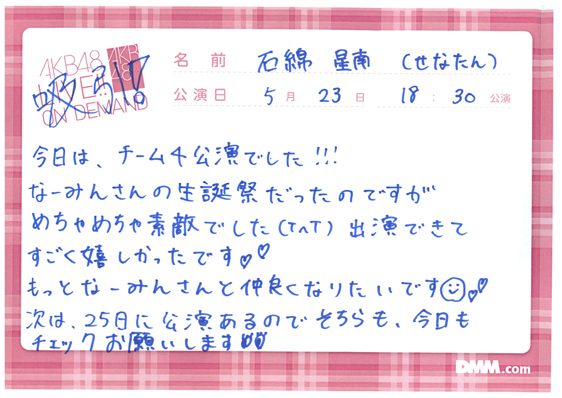 AKB48
LIVE!!
ON DEMAND
AKB
48
名 前 石綿 星南 (せなたん)
公演日 5月 23日 18:30 公演
今日は、チーム4公演でした!!!
なーみんさんの生誕祭だったのですが
めちゃめちゃ素敵でした(T^T) 出演できて
すごく嬉しかったです♡♡
もっとなーみんさんと仲良くなりたいです☺♡♡
次は、25日に公演あるのでそちらも、今日も
チェックお願いします
DMM.com